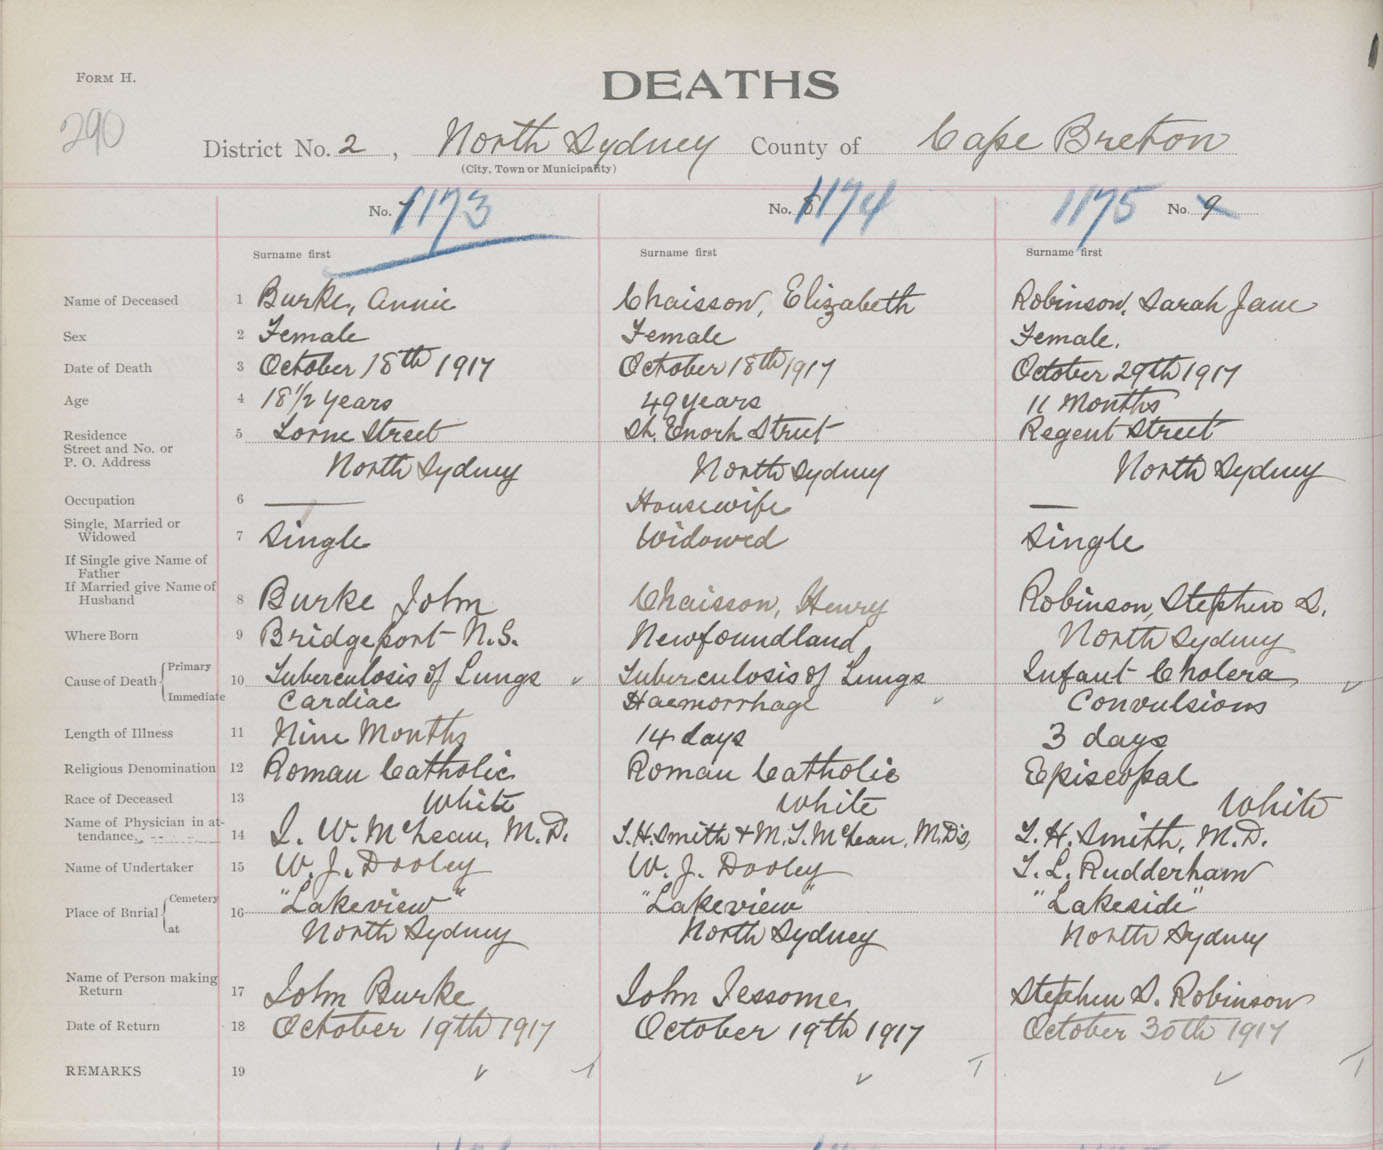 FORM H.
DEATHS
290
District No. 2, North Sydney County of Cape Breton
(City, Town or Municipality)
No. 1173 No. 8 1174 1175 No. 9
Surname first Surname first Surname first
Name of Deceased 1 Burke, Annie Chaisson, Elizabeth Robinson, Sarah Jane
Sex 2 Female Female Female.
Date of Death 3 October 18th 1917 October 18th 1917 October 29th 1917
Age 4 18 1/2 years 49 years 11 Months
Residence 5 Lorne Street St. Enoch Street Regent Street
Street and No. or
P. O. Address North Sydney North Sydney North Sydney
Occupation 6 — Housewife —
Single, Married or
Widowed 7 Single Widowed Single
If Single give Name of
Father
If Married give Name of
Husband 8 Burke John Chaisson, Henry Robinson, Stephen S.
Where Born 9 Bridgeport N.S. Newfoundland North Sydney
Cause of Death { Primary 10 Tuberculosis of Lungs Tuberculosis of Lungs Infant Cholera
Immediate Cardiac Haemorrhage Convulsions
Length of Illness 11 Nine Months 14 days 3 days
Religious Denomination 12 Roman Catholic Roman Catholic Episcopal
Race of Deceased 13 White White White
Name of Physician in at-
tendance 14 W. McLean, M.D. T.H. Smith + M.T. McLean, M.D's, T. H. Smith, M.D.
Name of Undertaker 15 W. J. Dooley W. J. Dooley T. L. Rudderham
Place of Burial { Cemetery 16 "Lakeview" "Lakeview" "Lakeside"
at North Sydney North Sydney North Sydney
Name of Person making
Return 17 John Burke John Jessome Stephen S. Robinson
Date of Return 18 October 19th 1917 October 19th 1917 October 30th 1917
REMARKS 19